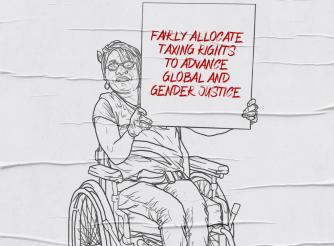 FAIRLY ALLOCATE
TAXING RIGHTS
TO ADVANCE
GLOBAL AND
GENDER JUSTICE